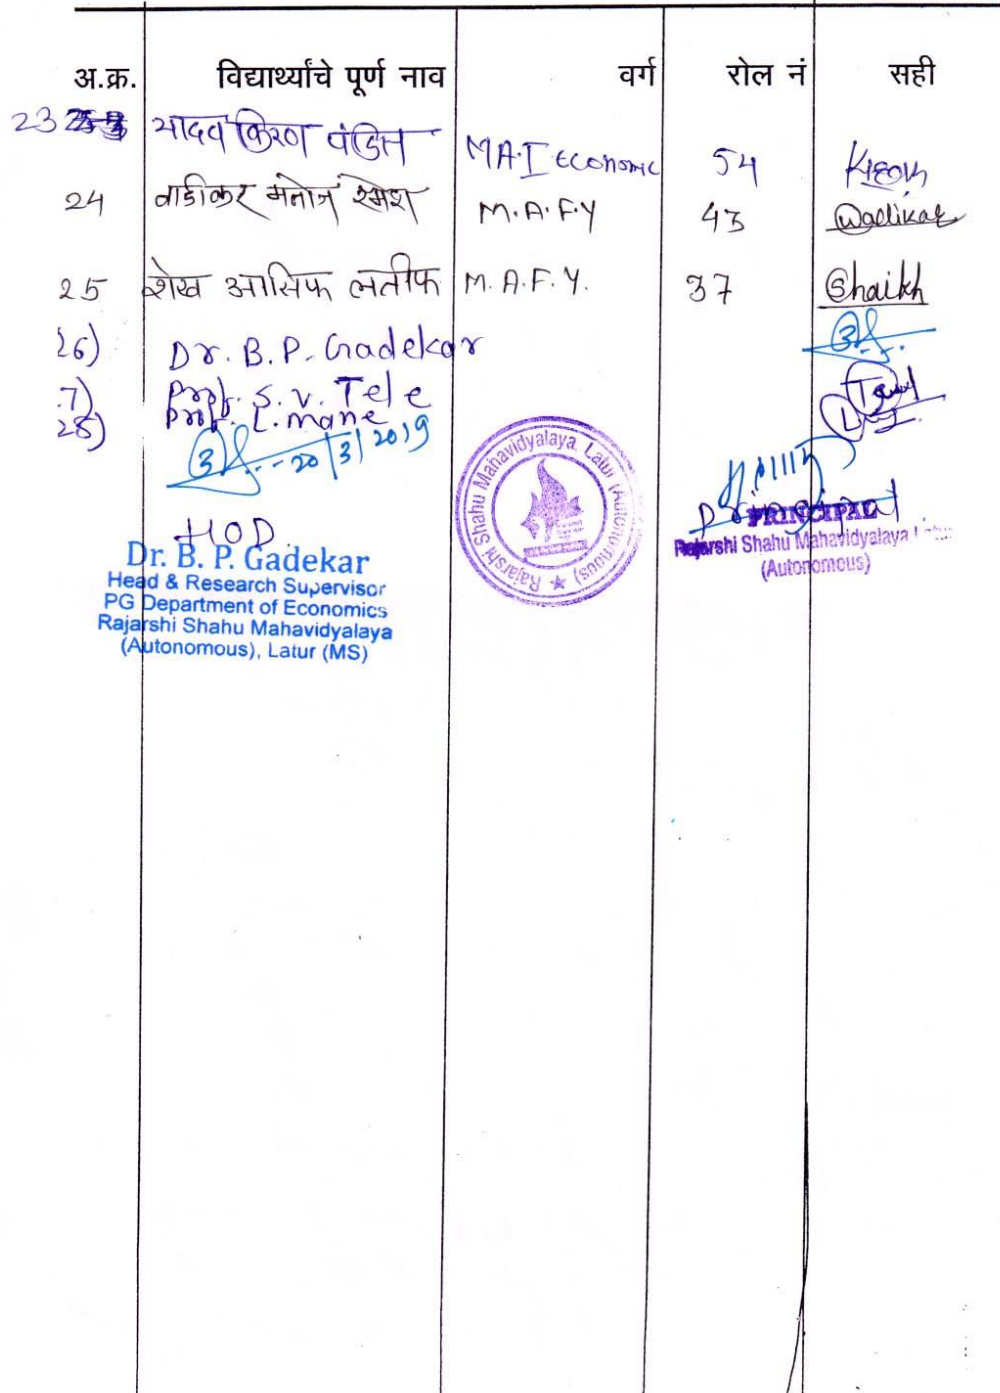 अ.क्र. विद्यार्थ्यांचे पूर्ण नाव वर्ग रोल नं सही
23 यादव किरण पंडित M.A.I Economic 54 Kiran
24 वाडीकर मनोज रमेश M.A.F.Y 43 Wadikar
25 शेख आसिफ लतीफ M.A.F.Y. 37 Shaikh
26) Dr. B. P. Gadekar
7) Prof. S. V. Tele
28) Prof. L. Mane
20/3/2019
HOD
Dr. B. P. Gadekar
Head & Research Supervisor
PG Department of Economics
Rajarshi Shahu Mahavidyalaya
(Autonomous), Latur (MS)
Rajarshi Shahu Mahavidyalaya, Latur (Autonomous)
Principal
PRINCIPAL
Rajarshi Shahu Mahavidyalaya
(Autonomous)